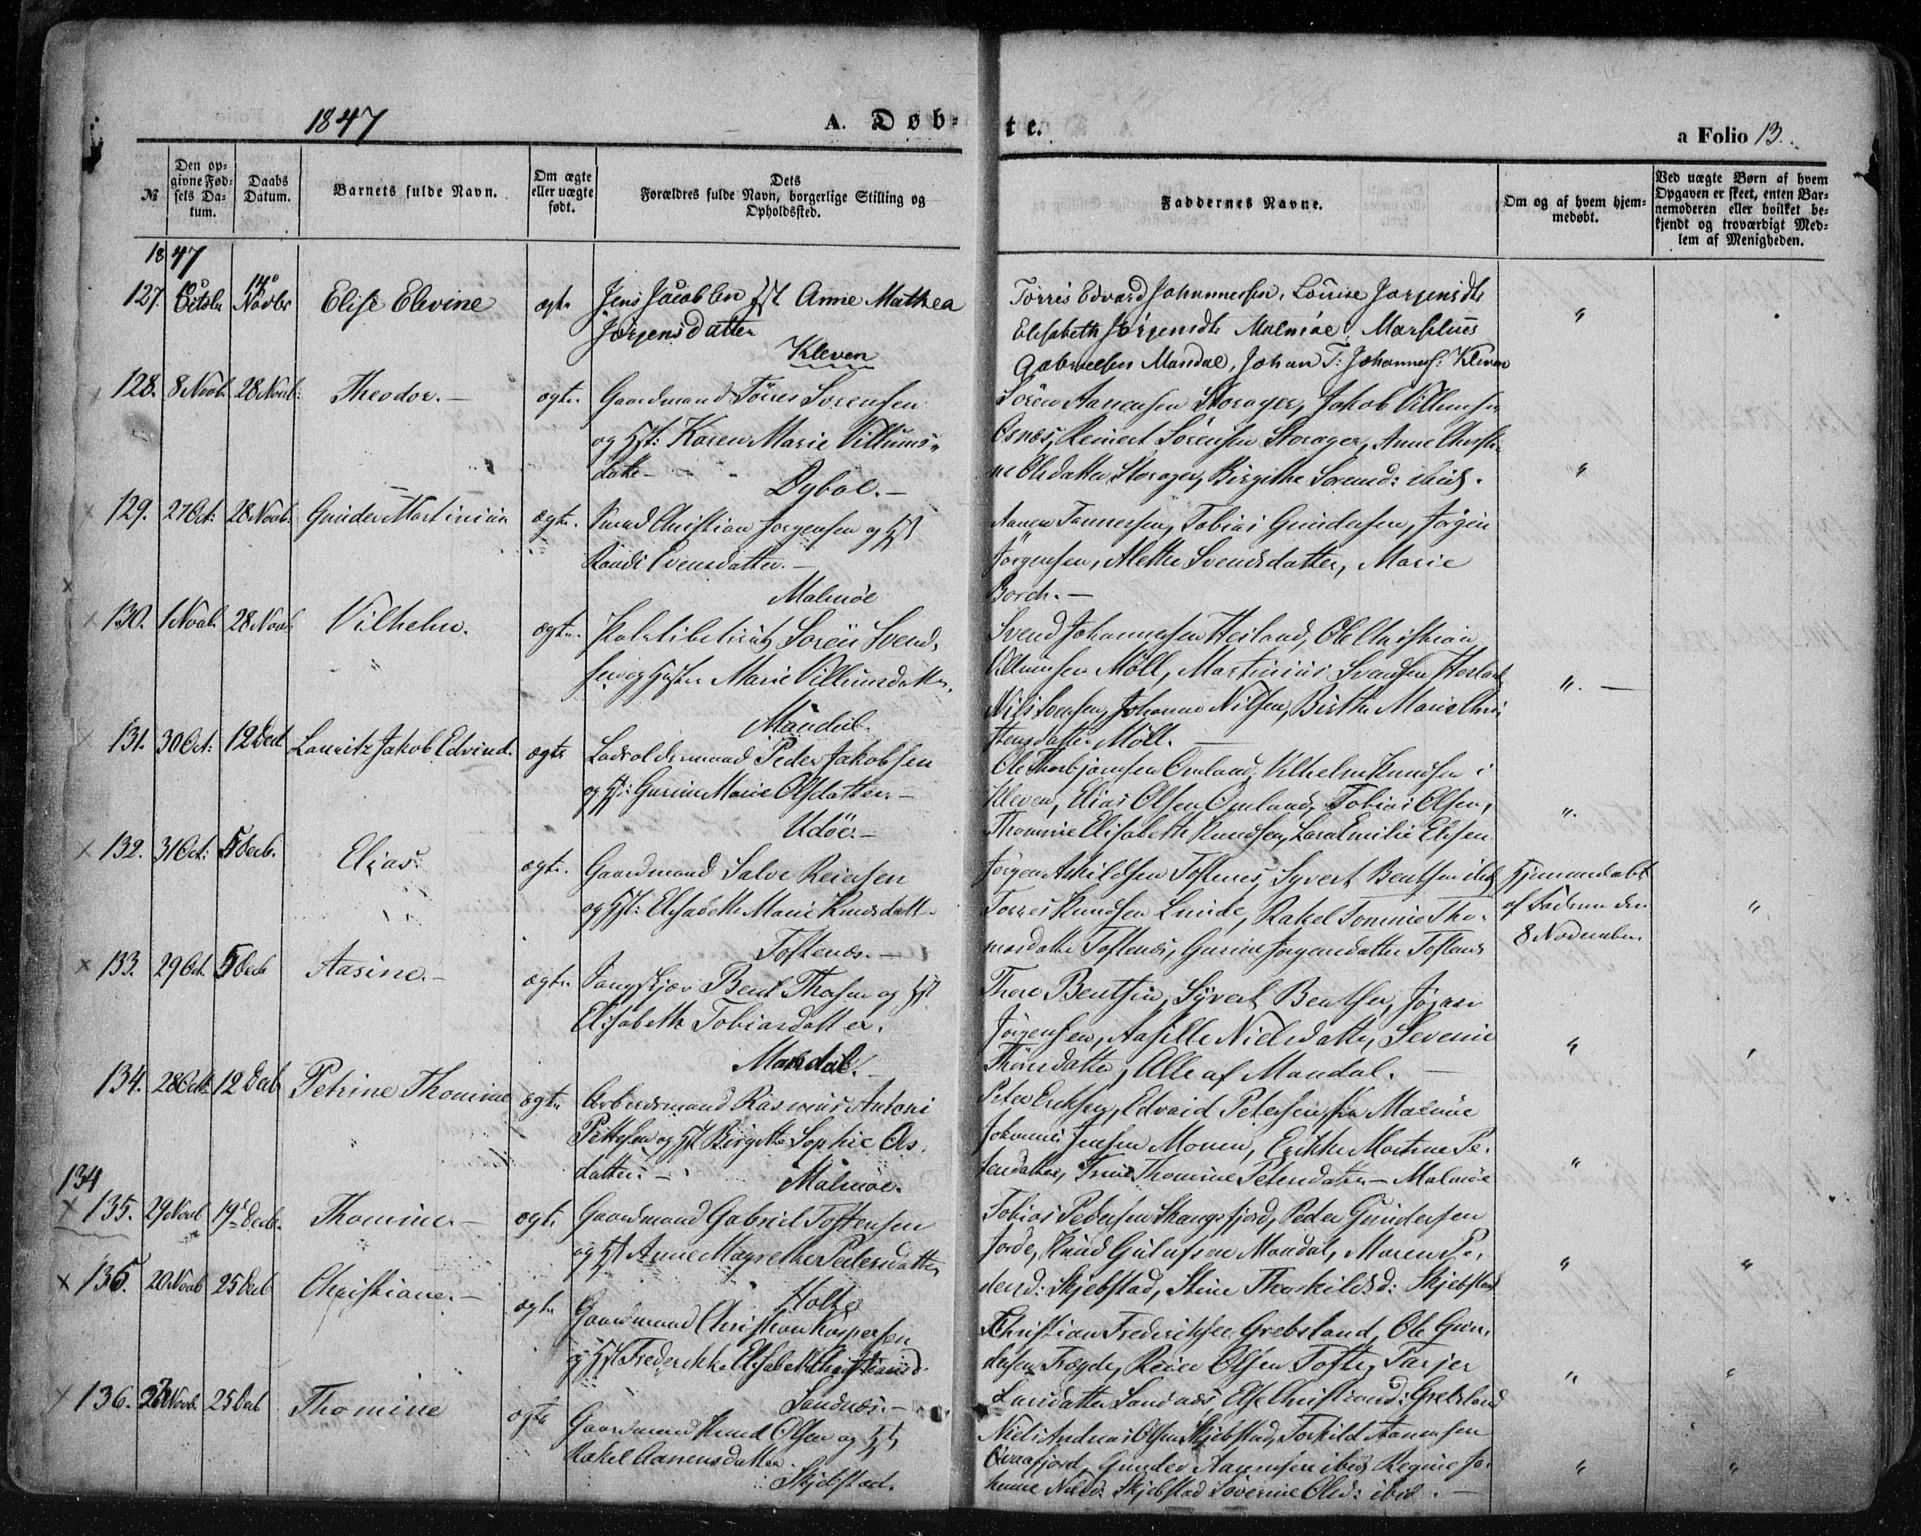 1847
A. Døb-
te.
a Folio 13.
№
Den op-
givne Fød-
sels Da-
tum.
Daabs
Datum.
Barnets fulde Navn.
Om ægte
eller uægte
født.
Dets
Forældres fulde Navn, borgerlige Stilling og
Opholdssted.
Faddernes Navne.
Om og af hvem hjem-
medøbt.
Ved uægte Børn af hvem
Opgaven er skeet, enten Bar-
nemoderen eller hvilket be-
kjendt og troværdigt Med-
lem af Menigheden.
1847
127. Octobr 14 Novbr Elise Elevine ægte Jens Jacobsen Hst Anne Mathea
Jørgensdatter
Kleven
Torris Edvard Johannessen, Louise Jørgensdtr
Elisabeth Jørgensdtr Malmöe, Marselius
Gabrielsen Mandal, Johan T: Johanness: Kleven
"
128. 8 Novb. 28 Novb: Theodor.— ægte. Gaardmand Törres Sorensen
og Hst: Karen Marie Villums-
datter
Dybøe.—
Sören Aanensen Storager, Jakob Villumsen
Osnæs, Reinert Sörensen Storager, Anne Christi-
ne Olsdatter Storager, Birgithe Sorensd: ibid.
"
129. 27 Oct: 28 Novb. Gunder Martinius ægte. Christian Jorgensen og Hst
Randi Evensdatter.—
Malmöe
Aanen Tonnessen, Tobias Gundersen, Jørgen
Jørgensen, Alethe Svendsdatter, Marie
Borch.—
130. 1 Novb. 28 Novb Vilhelm. ægte. Sören Svend-
sen og Hustru Marie Villumsdatter.
Mandal.
Svend Johannesen Heiland, Ole Christian
Villumsen Möll, Martinius Svendsen
Nils Jonsen, Johanne Nilsen, Birthe Marie Chri-
stensdatter Möll.
". —
131. 30 Oct: 12 Decb Lauritz Jakob Edvind. ægte Lodsoldermand Peder Jakobsen
og Hst: Gurine Marie Olsdatter.—
Udöe.—
Ole Thorbjørnsen Omland, Vilhelm Knudsen i
Kleven, Elias Olsen Omland, Tobias Olsen,
Thomine Elisabeth Knudsen, Lara Emilie Elisen
".
132. 31 Oct: 5 Decb. Elias. ægte. Gaardmand Salve Reiersen
og Hst: Elisabeth Marie Knudsdatter
Toftenæs.—
Jørgen Askildsen Toftenes, Syvert Bentsen ibid
Torres Knudsen Lunde, Rakel Tomine Tho-
masdatter Toftenæs, Gurine Jørgensdatter
Hjemmedøbt
af Faderen den
8 November.
"
133. 29 Oct. 5 Decb Aasine.— ægte. Bent Thorsen og Hst
Elisabeth Tobiasdatter.
Mandal.—
Thore Bentsen, Syvert Bentsen, Jørgen
Jørgensen, Aasille Nielsdatter, Severine
Thorsdatter, Alle af Mandal.—
"
134. 28 Octb 12 Decb Petrine Thomine ægte Arbeidsmand Rasmus Antoni
Pettersen og Hst Birgitte Sophie Ols-
datter.—
Malmöe.
Peter Eriksen, Edvard Petersen fra Malmöe
Johannes Jensen Monen, Erikke Mortine Pe-
tersdatter, Trine Thomine Petersdatter Malmöe
"
134
135. 29 Novb 19 Decb. Thomine.— ægte Gaardmand Gabriel Toftensen
og Hst Anne Magrethe Pedersdatter
Holte
Tobias Pedersen Skangsfjord, Peder Gundersen
Jorde, Knud Gulufsen Mandal, Maren Pe-
dersd: Skjebstad, Stine Thorkildsd: Skjebstad
" "
135. 20 Novb 25 Decb Christiane.— ægte Gaardmand Christian Kaspersen
og Hst Frederikke Elisabeth Christiansd.
Sandnæs.—
Christian Frederiksen Grebsland, Ole Gun-
dersen Tregde, Reier Olsen Tofte, Tarjer
Larsdatter Sandnæs, Else Christiansd: Grebsland
" "
136. 23 Novb. 25 Decb Thomine ægte Gaardmand Knud Olsen og Hst
Rakel Aanensdatter.
Skjebstad.
Niels Andreas Olsen Skjebstad, Torkild Aanensen
Gunder Aanensen ibid Regine Jo-
hanne Nilsd: Skjebstad Severine Olsd: ibid.—
" "